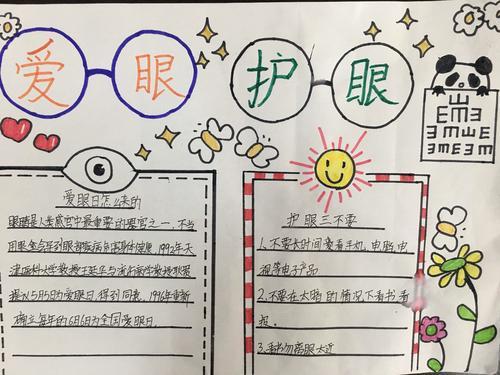 爱眼 护眼
爱眼日怎么来的
眼睛是人类感官中最重要的器官之一,不当
用眼会导致眼部疾病 1992年天
津医科大学教授王延华与流行病学教授耿贯
一 5月5日为爱眼日,得到 1996年重新
确立每年的6月6日为全国爱眼日。
护眼三不要
1.不要长时间看手机,电脑,电
视等电子产品
2.不要在太暗的情况下看书看
报。
3.看书勿离眼太近
山
E M Ǝ
Ǝ m Ш E
Ǝ m E Ǝ m